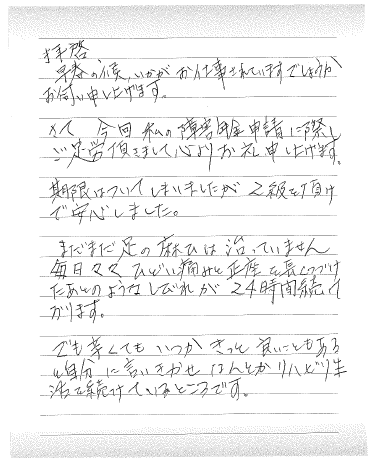 拝啓
早春の候、いかがお仕事されていますでしょうか
お伺い申し上げます。
さて 今回 私の障害年金申請に際し
ご足労頂きまして心よりお礼申し上げます。
期限はついてしまいましたが 2級を頂け
て安心しました。
まだまだ足の麻ひは治っていません
毎日々々 ひどい痛みと正座を長くつづけ
たあとのようなしびれが 24時間続いて
おります。
でも辛くても いつか きっと 良いこともある
と自分に言いきかせ なんとかリハビリ生
活を続けているところです。